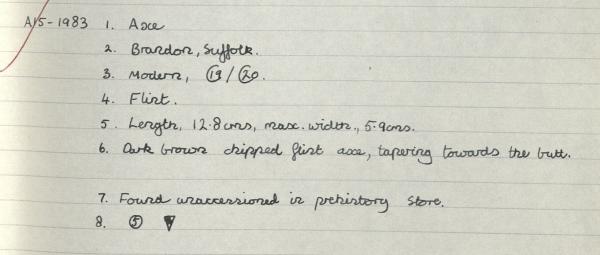 A15-1983 1. Axe
2. Brandon, Suffolk.
3. Modern, 19/20.
4. Flint.
5. Length, 12.8cms, max. width., 5.9cms.
6. Dark brown chipped flint axe, tapering towards the butt.
7. Found unaccessioned in prehistory store.
8. 5